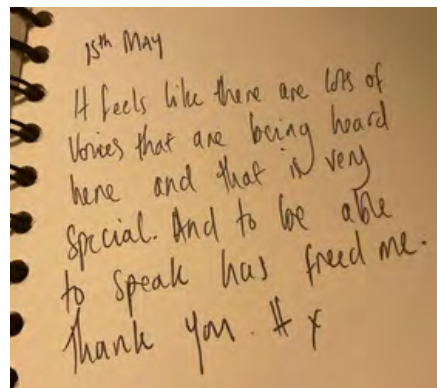 15th MAY
It feels like there are lots of
voices that are being heard
here and that is very
special. And to be able
to speak has freed me.
Thank you. H x